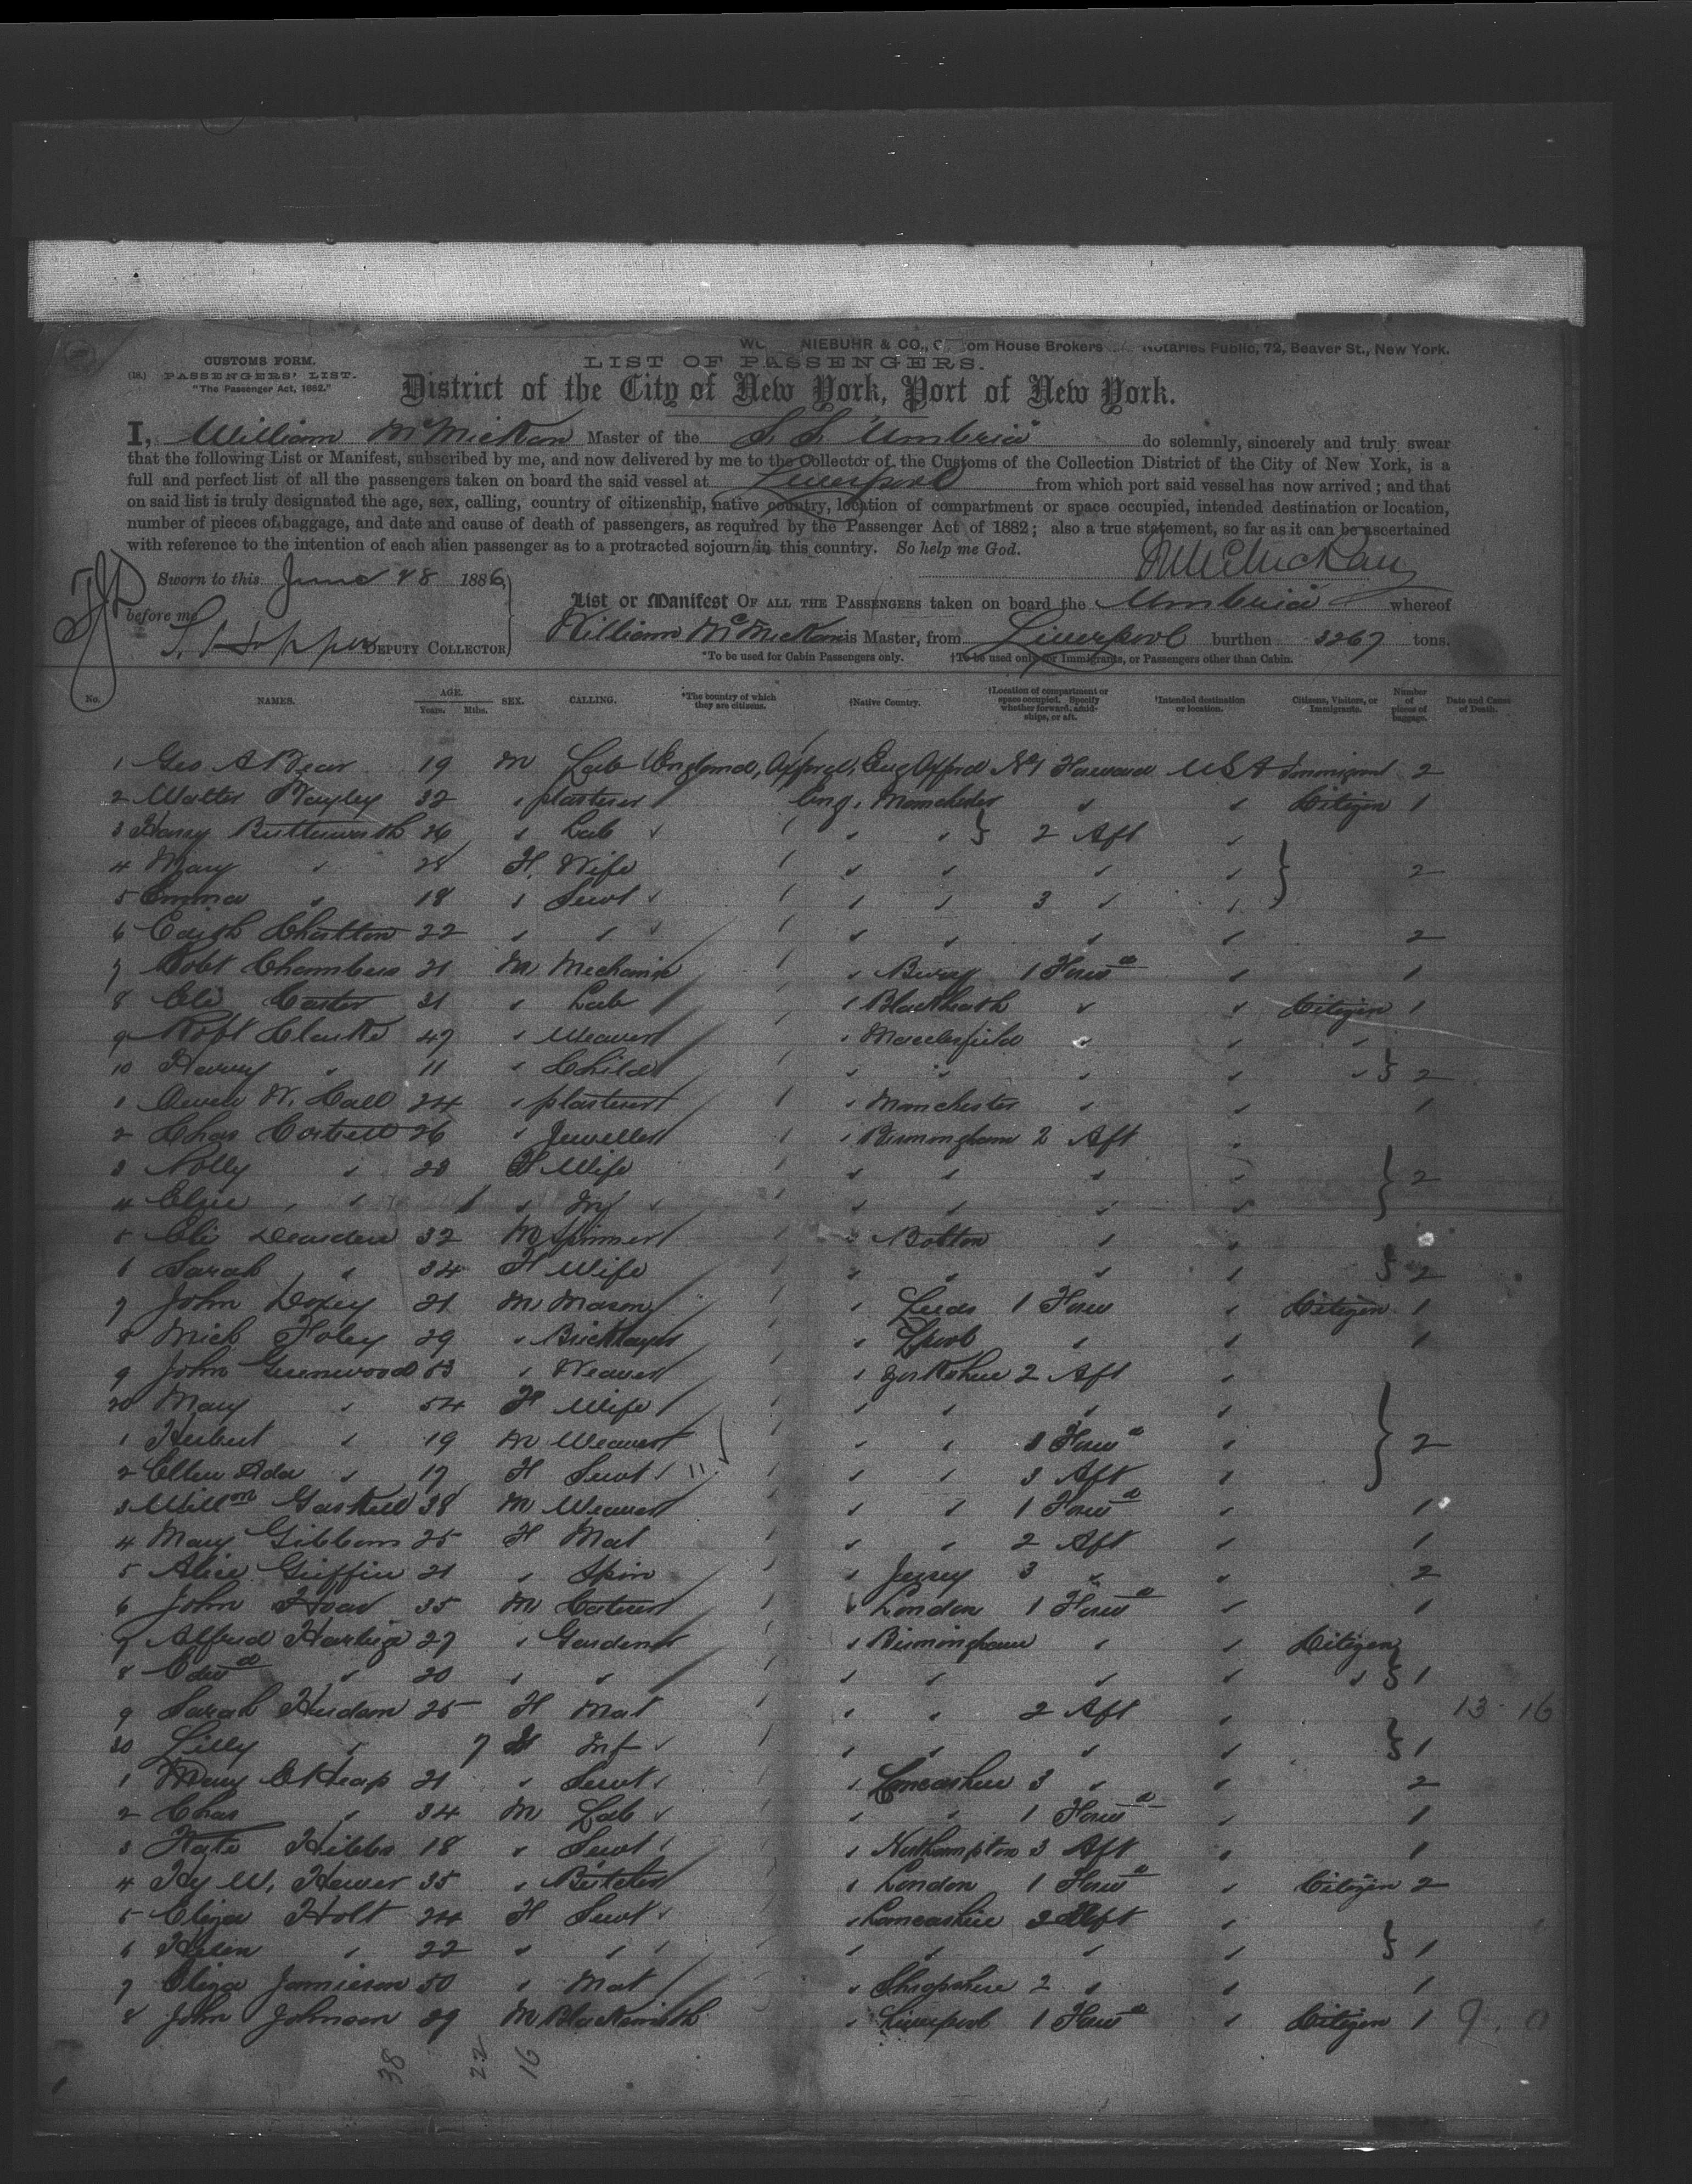 NIEBUHR & CO., House Brokers Notaries Public, 72, Beaver St., New York.
CUSTOMS FORM.
LIST OF PASSENGERS.
(18.) PASSENGERS' LIST.
"The Passenger Act, 1882."
District of the City of New York, Port of New York.
I, William McMickan Master of the S.S. Umbria do solemnly, sincerely and truly swear
that the following List or Manifest, subscribed by me, and now delivered by me to the Collector of the Customs of the Collection District of the City of New York, is a
full and perfect list of all the passengers taken on board the said vessel at Liverpool from which port said vessel has now arrived; and that
on said list is truly designated the age, sex, calling, country of citizenship, native country, location of compartment or space occupied, intended destination or location,
number of pieces of baggage, and date and cause of death of passengers, as required by the Passenger Act of 1882; also a true statement, so far as it can be ascertained
with reference to the intention of each alien passenger as to a protracted sojourn in this country. So help me God.
Sworn to this June 28 1886
before me
DEPUTY COLLECTOR
List or Manifest OF ALL THE PASSENGERS taken on board the Umbria whereof
William McMickan is Master, from Liverpool burthen 3267 tons.
*To be used for Cabin Passengers only. †To be used only for Immigrants, or Passengers other than Cabin.
No. NAMES. AGE. Years. Mths. SEX. CALLING. *The country of which they are citizens. †Native Country. †Location of compartment or space occupied. Specify whether forward, amidships, or aft. †Intended destination or location. Citizens, Visitors, or Immigrants. Number of pieces of baggage. Date and Cause of Death.
1 Geo A Bear 19 M Lab England, Eng No 1 Forward USA Immigrant 2
2 Walter Bayley 32 " plasterer Eng. Manchester " " Citizen 1
3 Harry Butterworth 26 " Lab " " 2 Aft "
4 Mary " 28 F. Wife " " " " 2
5 Emma " 18 " Servt " " 3 " "
6 Edith Chatton 22 " " " " " " 2
7 Robt Chambers 21 M Mechanic " Bury 1 Forwd " 1
8 Eli Carter 31 " Lab " Blackheath " " Citizen 1
9 Robt Clarke 47 " Weaver " Macclesfield " " "
10 Harry " 11 " Child " " " " " 2
1 W. Call 24 " plasterer " Manchester " " 1
2 Chas Cottrell 26 " Jeweller " Birmingham 2 Aft "
3 Polly " 23 F Wife " " " " 2
4 Elsie " 1 " Inf " " " "
5 Eli Dearden 32 M Spinner " Bolton " "
6 Sarah " 34 F Wife " " " " 2
7 John Doxey 21 M Mason " Leeds 1 Forw " Citizen 1
8 Mick Foley 29 " Bricklayer " Lpool " " 1
9 John Greenwood 53 " Weaver " Yorkshire 2 Aft "
20 Mary " 54 F Wife " " " "
1 Herbert " 19 M Weaver " " 1 Forwd " 2
2 Ellen Ada " 17 F Servt " " 3 Aft "
3 Willm Gaskell 38 M Weaver " " 1 Forwd " 1
4 Mary Gibbons 25 F Mat " " 2 Aft " 1
5 Alice Griffin 21 " Spin " Jersey 3 " " 2
6 John Hoar 35 M " London 1 Forwd " 1
7 Alfred 27 " Gardener " Birmingham " " Citizen
8 Edwd " 20 " " " " " " " 1
9 Sarah Hudson 25 F Mat " " 2 Aft " 13 16
30 Lilly " 7 F Inf " " " " 1
1 Mary E Heap 21 " Servt " Lancashire 3 " " 2
2 Chas " 34 M Lab " " 1 Forwd " 1
3 Kate Hibbs 18 " Servt " Northampton 3 Aft " 1
4 Hy W. Hewer 35 " Butcher " London 1 Forwd " Citizen 2
5 Eliza Holt 24 F Servt " Lancashire 3 Aft "
6 Helen " 22 " " " " " " 1
7 Eliza Jamieson 50 " Mat " Shropshire 2 " " 1
8 John Johnson 29 M Blacksmith " Liverpool 1 Forwd " Citizen 1 9. 0
38 22 16